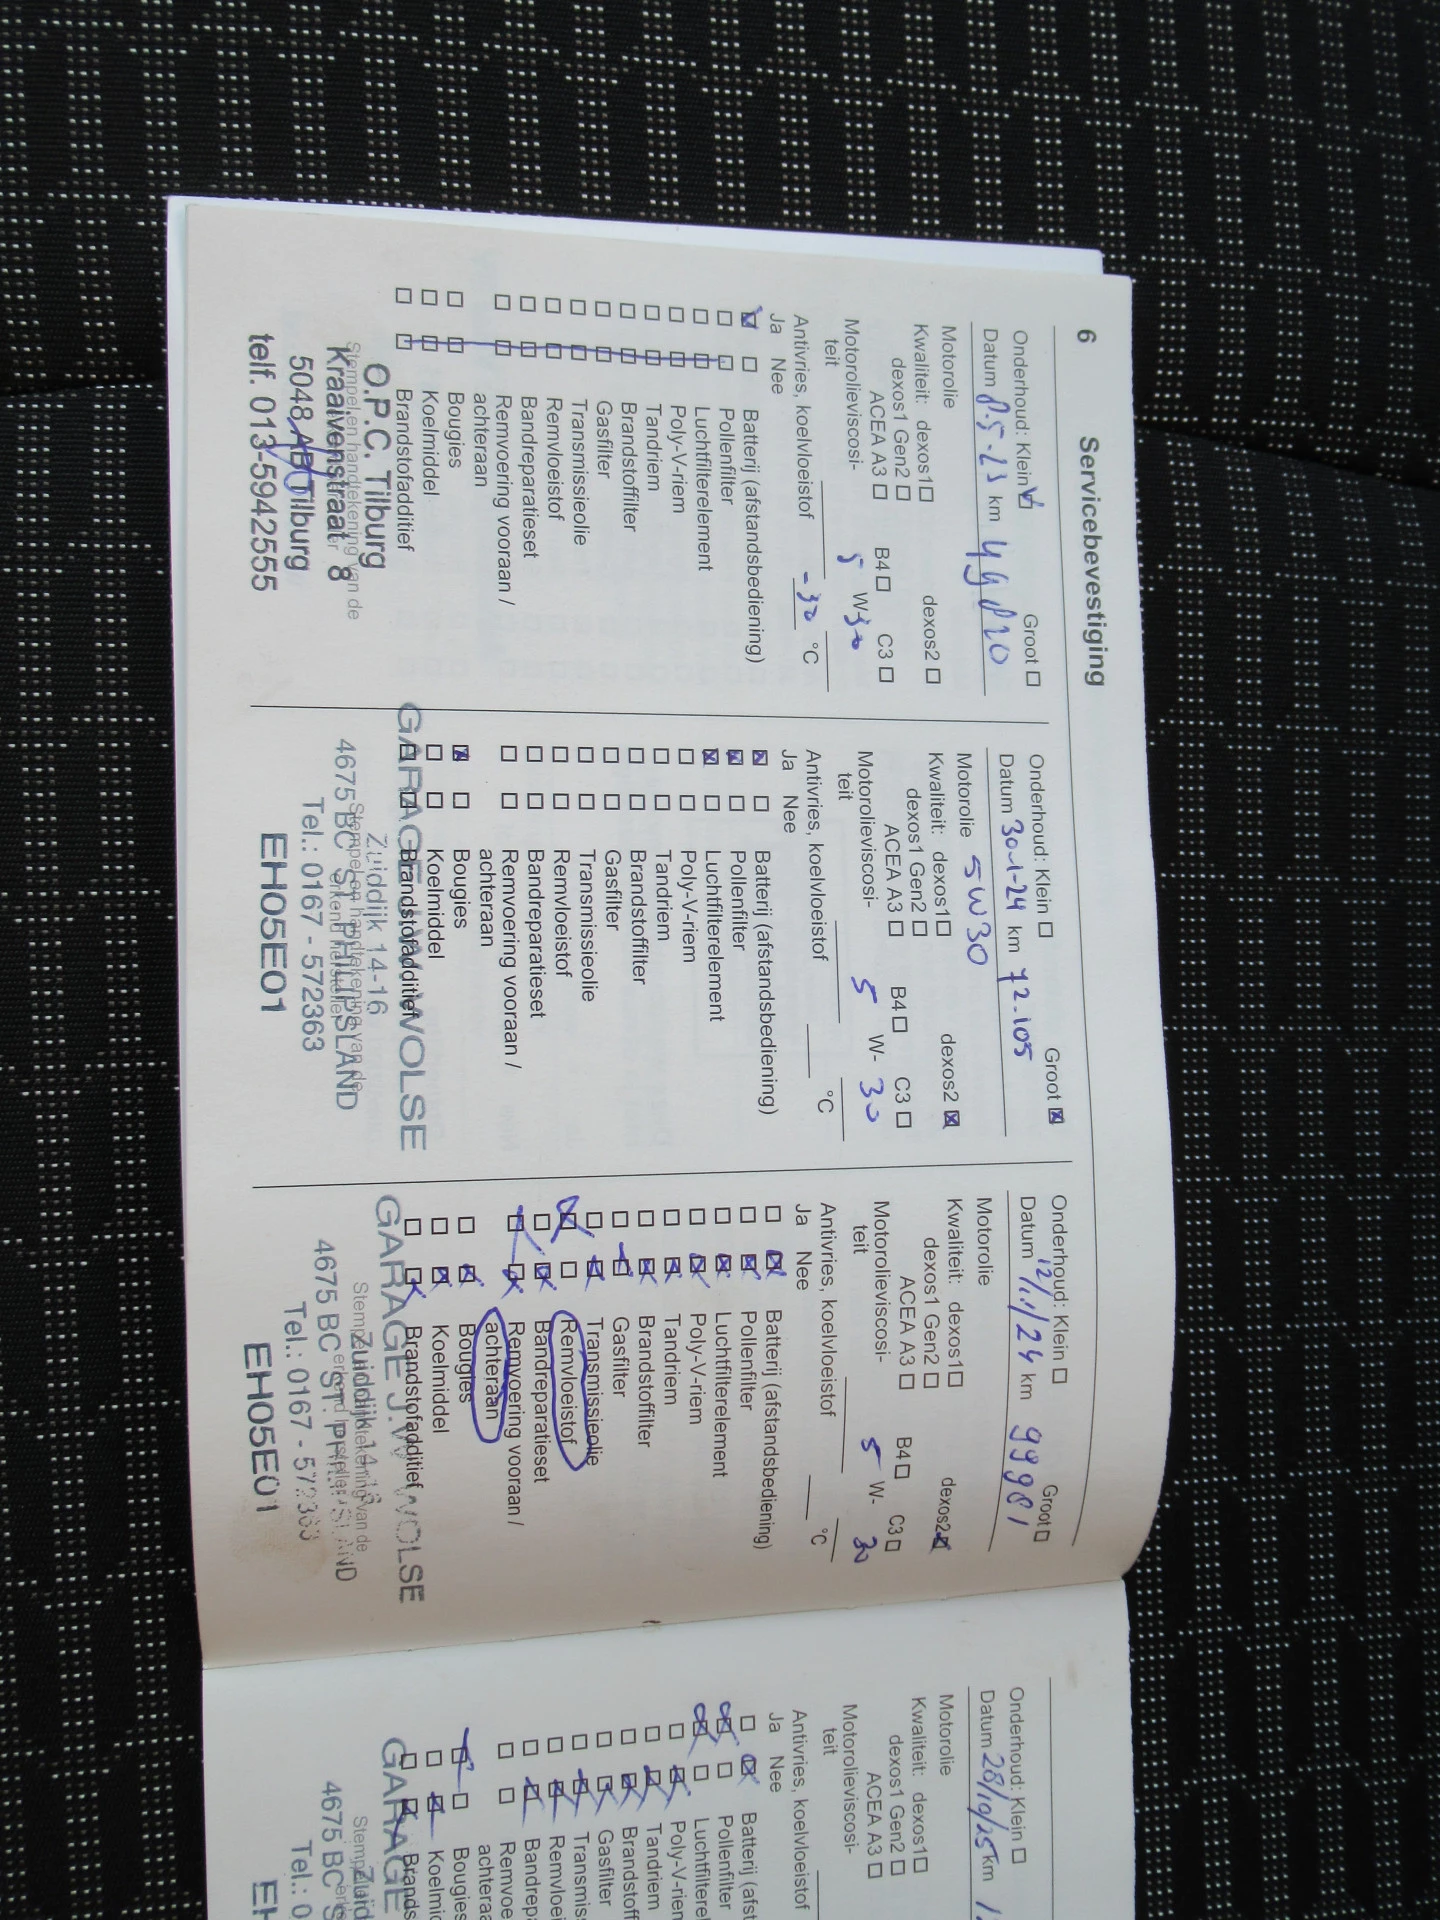 6 Servicebevestiging
Onderhoud: Klein Groot
Datum 8-5-23 km 44820
Motorolie
Kwaliteit: dexos1 dexos2
dexos1 Gen2
ACEA A3 B4 C3
Motorolieviscosi-
teit 5 W30
Antivries, koelvloeistof -30 °C
Ja Nee
Batterij (afstandsbediening)
Pollenfilter
Luchtfilterelement
Poly-V-riem
Tandriem
Brandstoffilter
Gasfilter
Transmissieolie
Remvloeistof
Bandreparatieset
Remvoering vooraan /
achteraan
Bougies
Koelmiddel
Brandstofadditief
O.P.C. Tilburg
Stempel en handtekening van de
Kraaivenstraat 8
5048 AB Tilburg
telf. 013-5942555
Onderhoud: Klein Groot
Datum 30-1-24 km 72.105
Motorolie 5W30
Kwaliteit: dexos1 dexos2
dexos1 Gen2
ACEA A3 B4 C3
Motorolieviscosi-
teit 5 W- 30
Antivries, koelvloeistof °C
Ja Nee
Batterij (afstandsbediening)
Pollenfilter
Luchtfilterelement
Poly-V-riem
Tandriem
Brandstoffilter
Gasfilter
Transmissieolie
Remvloeistof
Bandreparatieset
Remvoering vooraan /
achteraan
Bougies
Koelmiddel
Brandstofadditief
GARAGE J.W. WOLSE
Zuiddijk 14-16
Stempel en handtekening van de
erkend hersteller
4675 BC ST. PHILIPSLAND
Tel.: 0167 - 572363
EH05E01
Onderhoud: Klein Groot
Datum 12/11/24 km 99981
Motorolie
Kwaliteit: dexos1 dexos2
dexos1 Gen2
ACEA A3 B4 C3
Motorolieviscosi-
teit 5 W- 30
Antivries, koelvloeistof °C
Ja Nee
Batterij (afstandsbediening)
Pollenfilter
Luchtfilterelement
Poly-V-riem
Tandriem
Brandstoffilter
Gasfilter
Transmissieolie
Remvloeistof
Bandreparatieset
Remvoering vooraan /
achteraan
Bougies
Koelmiddel
Brandstofadditief
GARAGE J.W. WOLSE
Zuiddijk 14-16
Stempel en handtekening van de
erkend hersteller
4675 BC ST. PHILIPSLAND
Tel.: 0167 - 572363
EH05E01
Onderhoud: Klein
Datum 28/10/25 km 1
Motorolie
Kwaliteit: dexos1
dexos1 Gen2
ACEA A3
Motorolieviscosi-
teit
Antivries, koelvloeistof
Ja Nee
Batterij (afst
Pollenfilter
Luchtfilterel
Poly-V-rien
Tandriem
Brandstoff
Gasfilter
Transmis
Remvloei
Bandrepa
Remvoe
achteraa
Bougies
Koelmid
Brands
GARAGE
Zuid
Stemp
erke
4675 BC S
Tel.: 0
EH